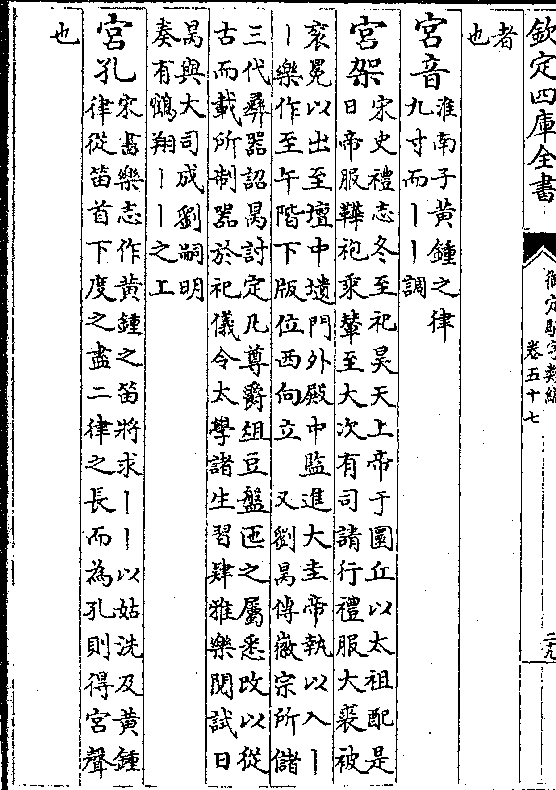 欽定四庫全書
御定駢字類編
卷五十七
二九
者
也
宮音
淮南子黄鍾之律
九寸而丨丨調
宮架
宋史禮志冬至祀昊天上帝于圜丘以太祖配是
日帝服鞾袍乘輦至大次有司請行禮服大裘被
衮冕以出至壇中壝門外殿中監進大圭帝執以入丨
丨樂作至午階下版位西向立　又劉昺傳徽宗所儲
三代彝器詔昺討定凡尊爵俎豆盤匜之屬悉改以從
古而載所制器於祀儀令太學諸生習肄雅樂閱試日
昺與大司成劉嗣明
奏有鶴翔丨丨之上
宮孔
宋書樂志作黄鍾之笛將求丨丨以姑洗及黄鍾
律從笛首下度之盡二律之長而為孔則得宮聲
也